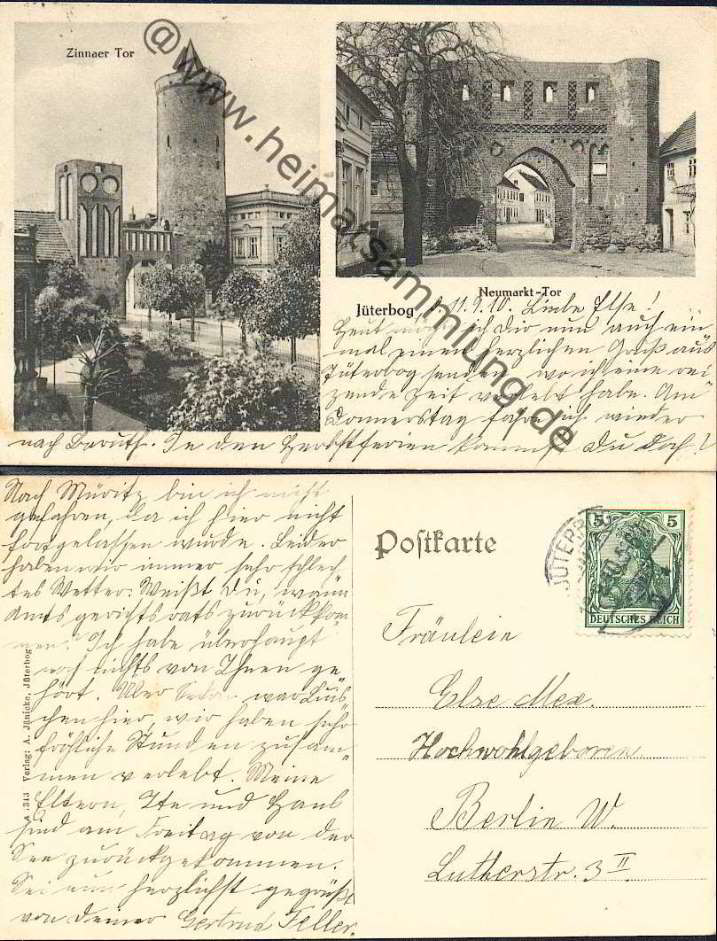 Zinnaer Tor
@www.heimatsammlung.de
Neumarkt-Tor
Jüterbog, d. 11.9.10. Liebe Else!
Heut möcht ich dir nun auch ein
mal einen herzlichen Gruß aus
Jüterbog senden, wo ich eine rei
zende Zeit verlebt habe. Am
Donnerstag fahre ich wieder
nach Baruth. In den Herbstferien kommst Du doch!
Nach Müritz bin ich nicht
gefahren, da ich hier nicht
fortgelassen wurde. Leider
haben wir immer sehr schlech
tes Wetter. Weißt du, wann
Amtsgerichtsrats zurückkom
men? Ich habe überhaupt
noch nichts von Ihnen ge
hört. Über war Lüs
chen hier, wir haben sehr
fröhliche Stunden zusam
men verlebt. Meine
Eltern, Ite und Hans
sind am Freitag von der
See zurückgekommen.
Sei nun herzlichst gegrüßt
von deiner Gertrud Teller.
A 1313 Verlag: A. Jänicke, Jüterbog
Postkarte
JÜTERBOG
5 5
DEUTSCHES REICH
Fräulein
Else Mex.
Hochwohlgeboren
Berlin W.
Lutherstr. 3 II.